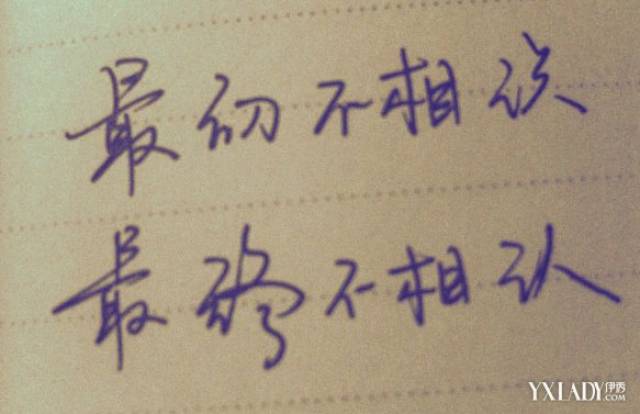 最初不相识
最终不相认
YXLADY伊秀
.COM